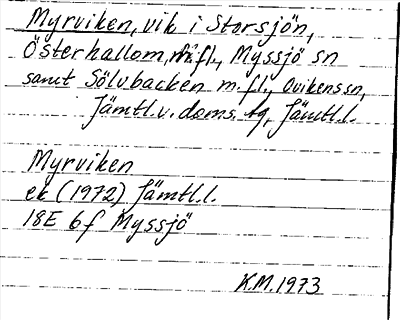 Myrviken, vik i Storsjön,
Österhallom, m.fl., Myssjö sn
samt Sölvbacken m.fl., Ovikens sn,
Jämtl.v. doms. tg, Jämtl.l.
Myrviken
ek (1972) Jämtl.l.
18E 6f Myssjö
K.M. 1973